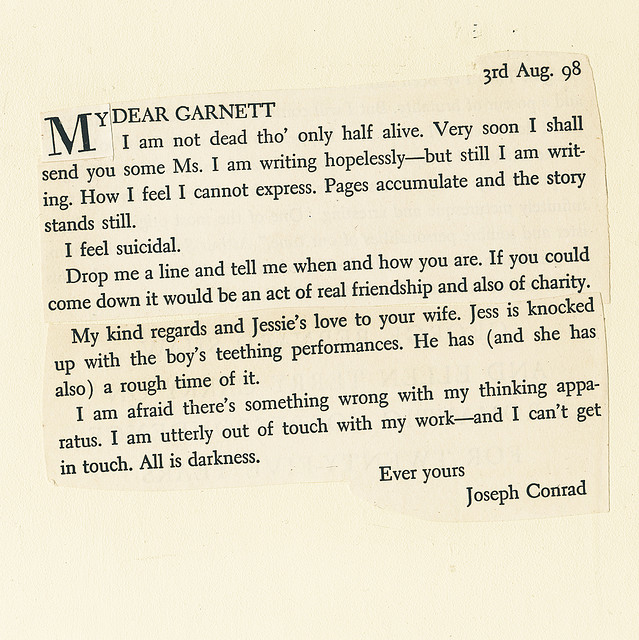 3rd Aug. 98
MY DEAR GARNETT
I am not dead tho' only half alive. Very soon I shall
send you some Ms. I am writing hopelessly—but still I am writ-
ing. How I feel I cannot express. Pages accumulate and the story
stands still.
I feel suicidal.
Drop me a line and tell me when and how you are. If you could
come down it would be an act of real friendship and also of charity.
My kind regards and Jessie's love to your wife. Jess is knocked
up with the boy's teething performances. He has (and she has
also) a rough time of it.
I am afraid there's something wrong with my thinking appa-
ratus. I am utterly out of touch with my work—and I can't get
in touch. All is darkness.
Ever yours
Joseph Conrad